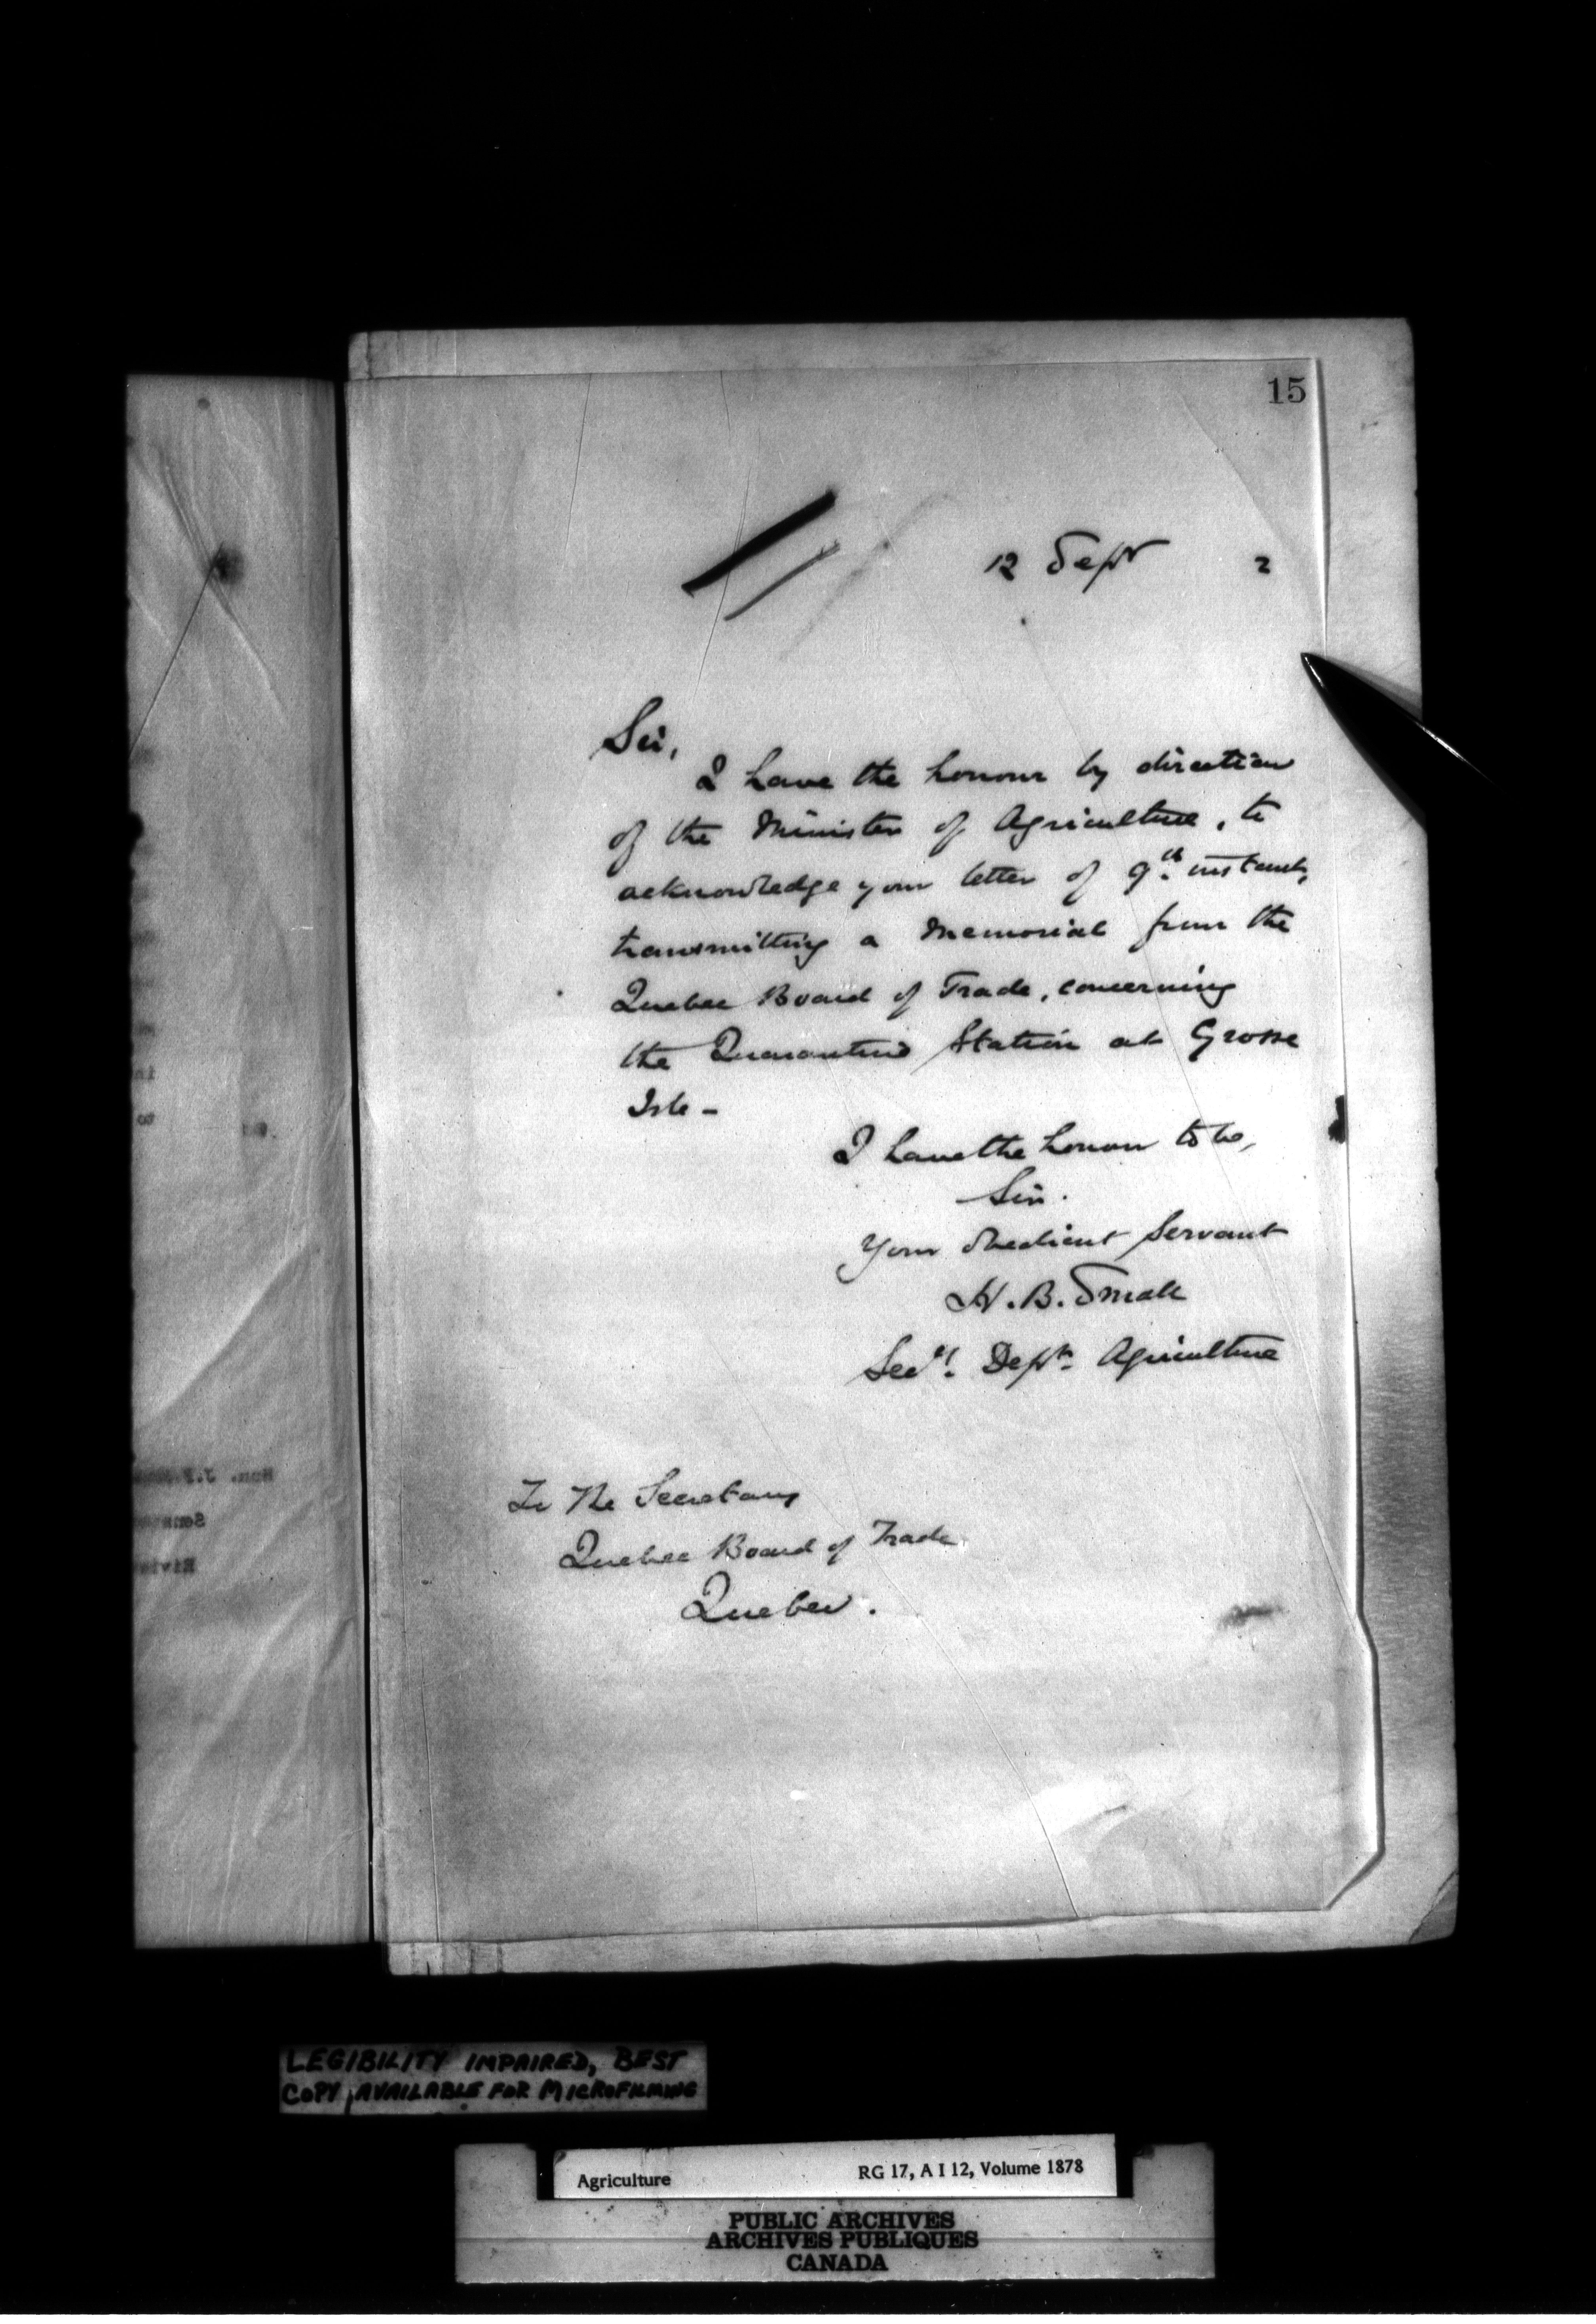 15
12 Sept 2
Sir,
I have the honour by direction
of the Minister of Agriculture, to
acknowledge your letter of 9th instant,
transmitting a Memorial from the
Quebec Board of Trade, concerning
the Quarantine Station at Grosse
Isle -
I have the honour to be,
Sir.
Your obedient Servant
H. B. Small
Secy. Dept. Agriculture
To The Secretary
Quebec Board of Trade
Quebec.
Hon. J.
LEGIBILITY IMPAIRED, BEST
COPY AVAILABLE FOR MICROFILMING
Agriculture RG 17, A I 12, Volume 1878
PUBLIC ARCHIVES
ARCHIVES PUBLIQUES
CANADA